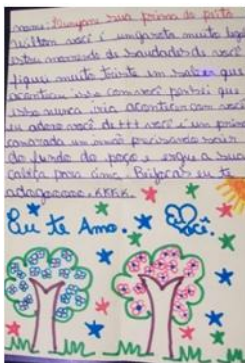 nome: Mirryam sua prima do peito
Wilton você é um garoto muito legal
estou morrendo de saudades de você
fiquei muito triste em saber que
aconteceu isso com você pensei que
isso nunca iria acontecer com você
eu adoro você de+++ você é um primo
camarada um irmão precisando sair
do fundo do poço e ergue a sua
cabeça para cima. Beijocas eu te
adogoooooo. KKKK.
Eu te Amo. Você.